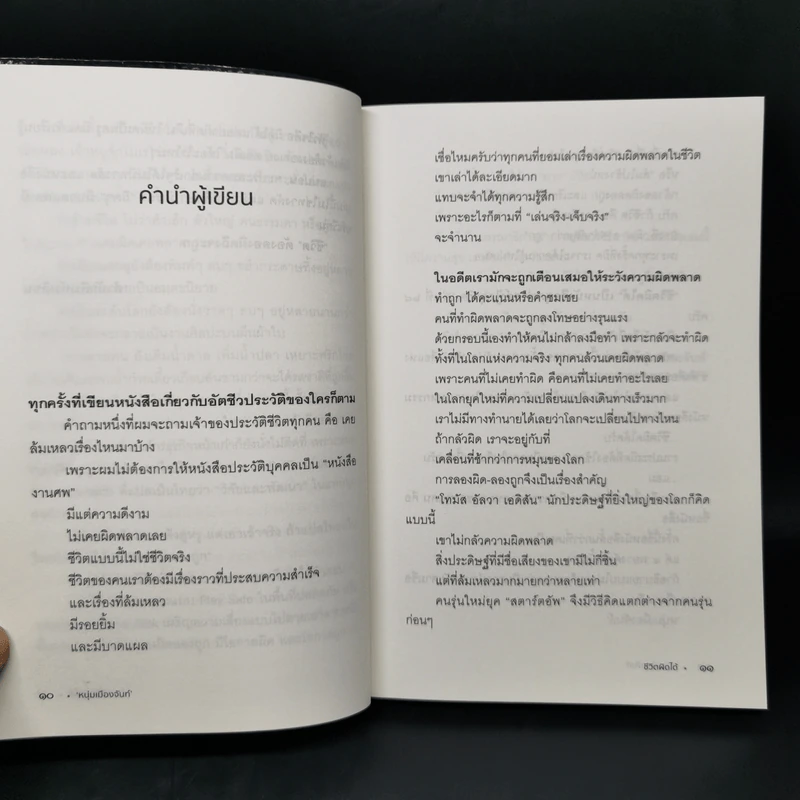 คำนำผู้เขียน
ทุกครั้งที่เขียนหนังสือเกี่ยวกับอัตชีวประวัติของใครก็ตาม
คำถามหนึ่งที่ผมจะถามเจ้าของประวัติชีวิตทุกคน คือ เคย
ล้มเหลวเรื่องไหนมาบ้าง
เพราะผมไม่ต้องการให้หนังสือประวัติบุคคลเป็น "หนังสือ
งานศพ"
มีแต่ความดีงาม
ไม่เคยผิดพลาดเลย
ชีวิตแบบนี้ไม่ใช่ชีวิตจริง
ชีวิตของคนเราต้องมีเรื่องราวที่ประสบความสำเร็จ
และเรื่องที่ล้มเหลว
มีรอยยิ้ม
และมีบาดแผล
๑๐ • 'หนุ่มเมืองจันท์'
เชื่อไหมครับว่าทุกคนที่ยอมเล่าเรื่องความผิดพลาดในชีวิต
เขาเล่าได้ละเอียดมาก
แทบจะจำได้ทุกความรู้สึก
เพราะอะไรก็ตามที่ "เล่นจริง-เจ็บจริง"
จะจำนาน
ในอดีตเรามักจะถูกเตือนเสมอให้ระวังความผิดพลาด
ทำถูก ได้คะแนนหรือคำชมเชย
คนที่ทำผิดพลาดจะถูกลงโทษอย่างรุนแรง
ด้วยกรอบนี้เองทำให้คนไม่กล้าลงมือทำ เพราะกลัวจะทำผิด
ทั้งที่ในโลกแห่งความจริง ทุกคนล้วนเคยผิดพลาด
เพราะคนที่ไม่เคยทำผิด คือคนที่ไม่เคยทำอะไรเลย
ในโลกยุคใหม่ที่ความเปลี่ยนแปลงเดินทางเร็วมาก
เราไม่มีทางทำนายได้เลยว่าโลกจะเปลี่ยนไปทางไหน
ถ้ากลัวผิด เราจะอยู่กับที่
เคลื่อนที่ช้ากว่าการหมุนของโลก
การลองผิด-ลองถูกจึงเป็นเรื่องสำคัญ
"โทมัส อัลวา เอดิสัน" นักประดิษฐ์ที่ยิ่งใหญ่ของโลกก็คิด
แบบนี้
เขาไม่กลัวความผิดพลาด
สิ่งประดิษฐ์ที่มีชื่อเสียงของเขามีไม่กี่ชิ้น
แต่ที่ล้มเหลวมากมายกว่าหลายเท่า
คนรุ่นใหม่ยุค "สตาร์ตอัพ" จึงมีวิธีคิดแตกต่างจากคนรุ่น
ก่อนๆ
ชีวิตผิดได้ • ๑๑